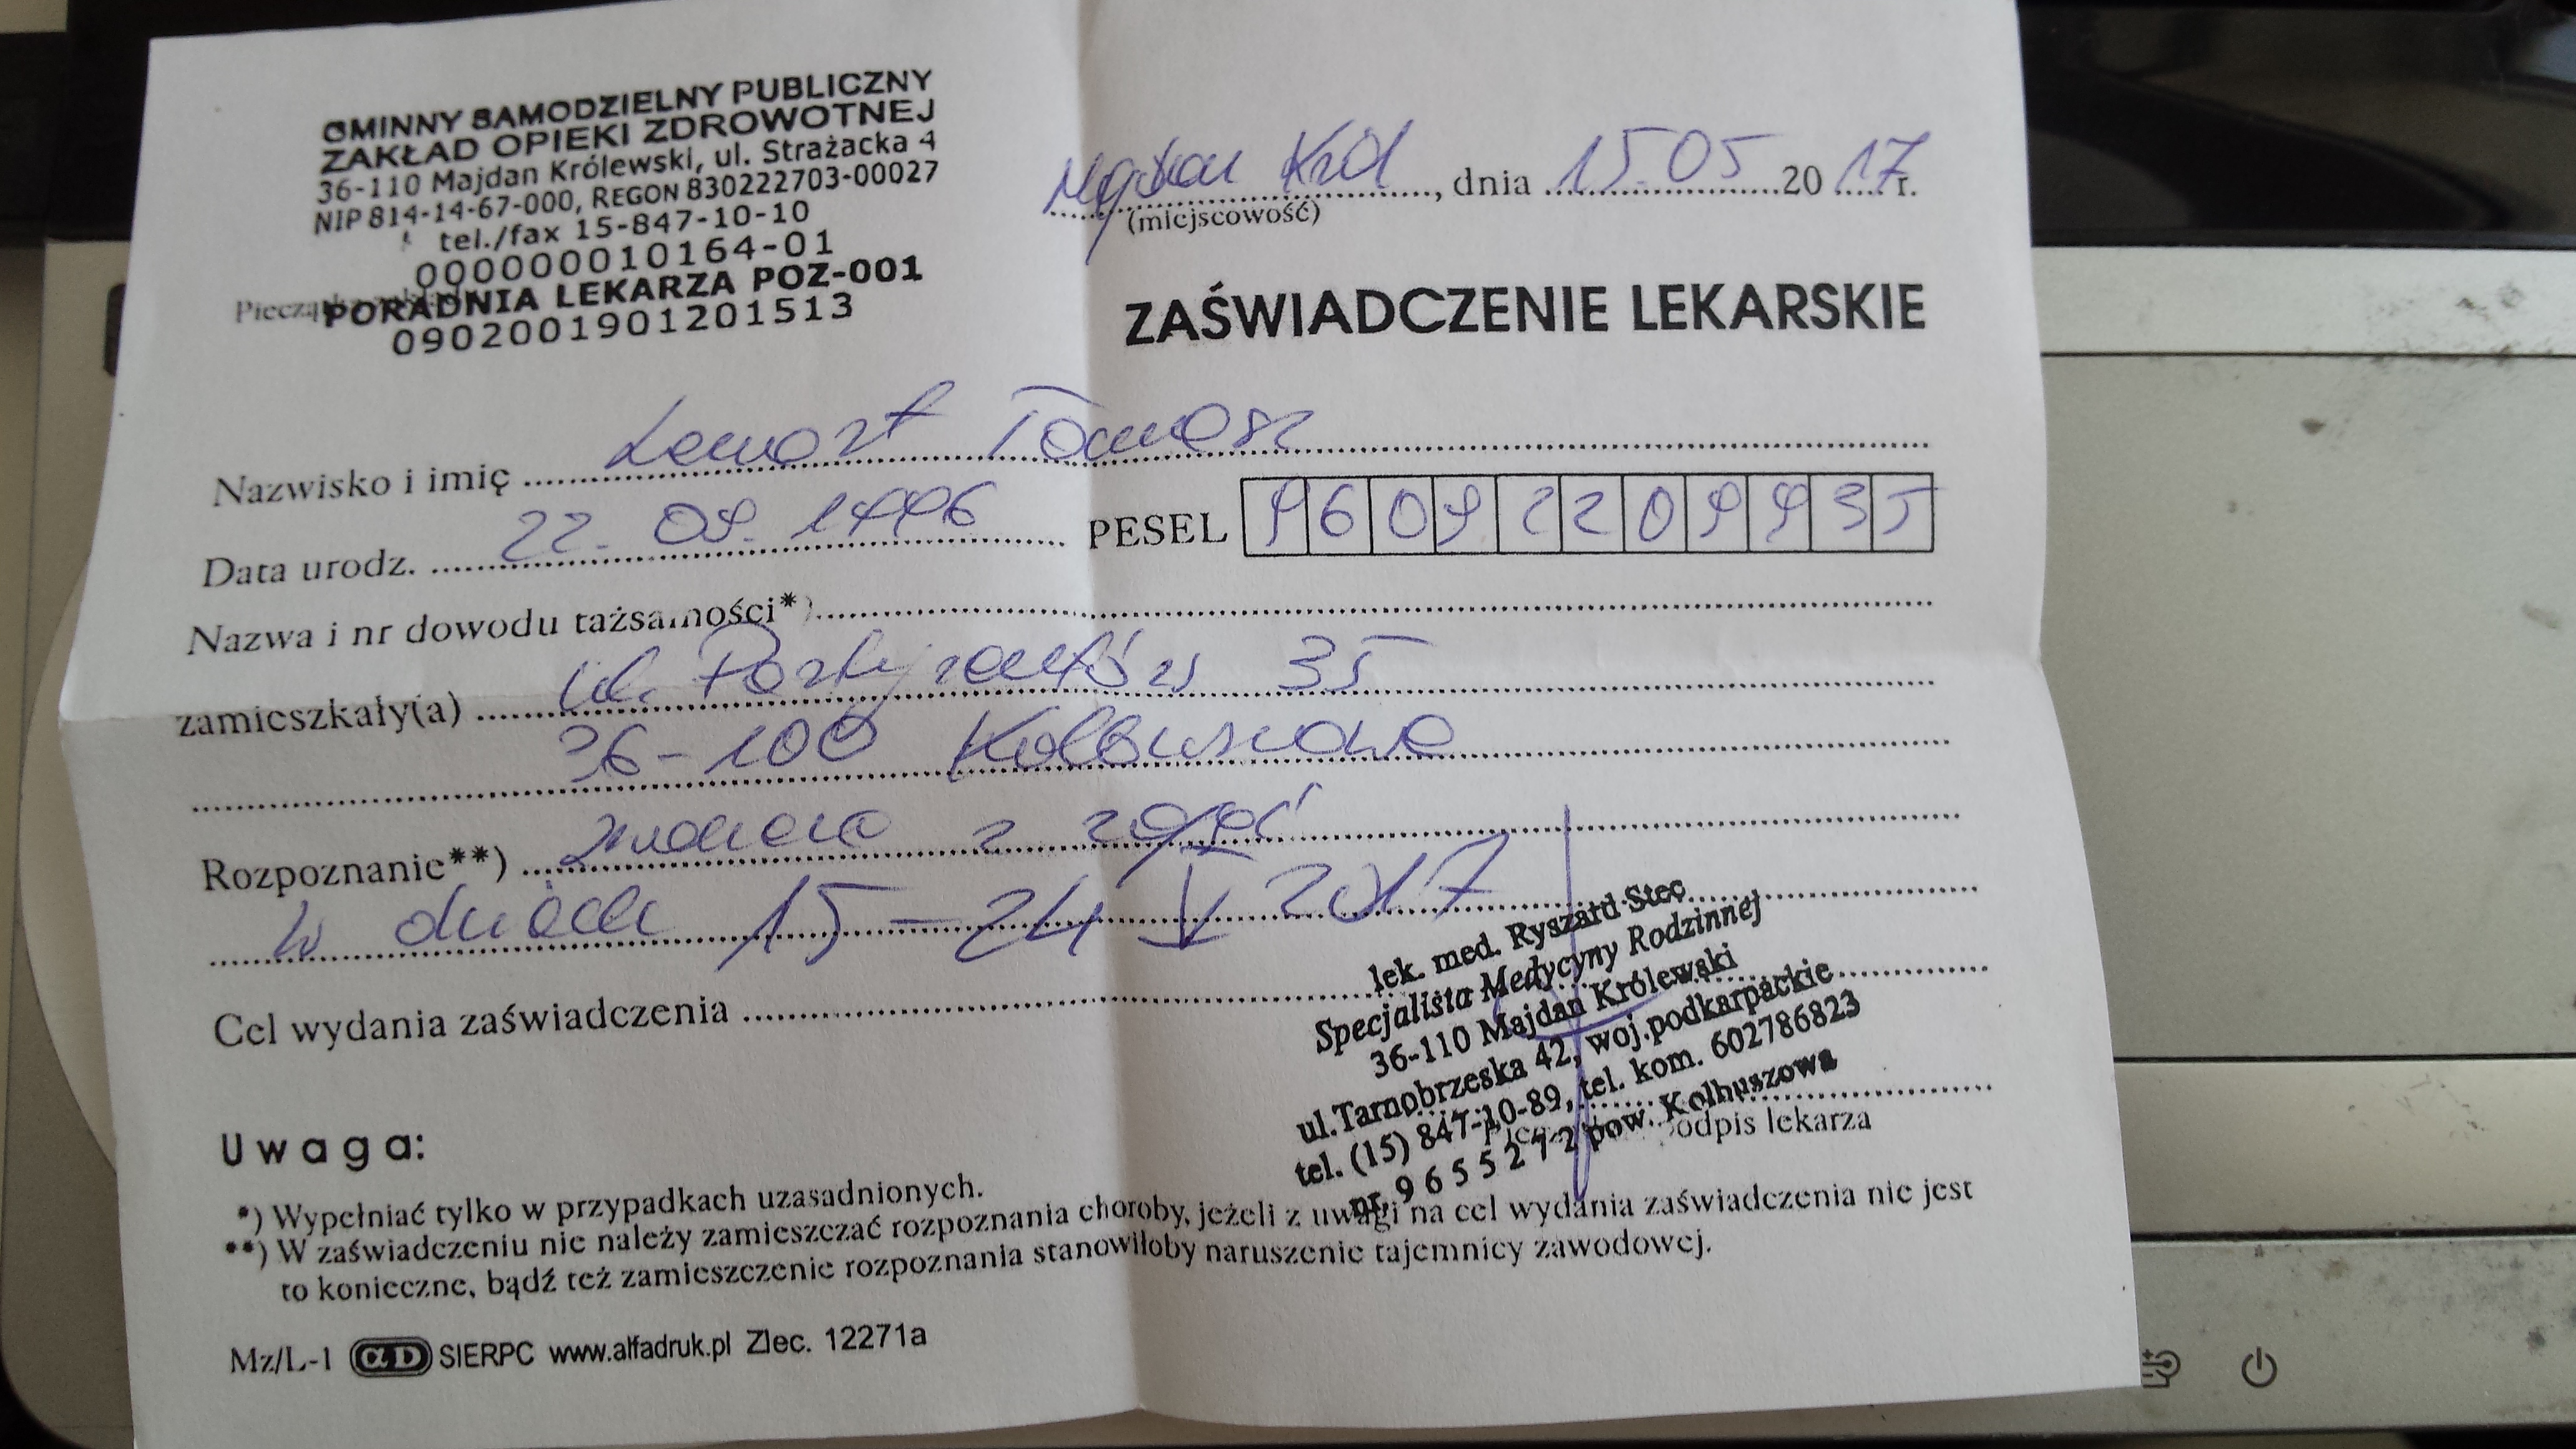 GMINNY SAMODZIELNY PUBLICZNY
ZAKŁAD OPIEKI ZDROWOTNEJ
36-110 Majdan Królewski, ul. Strażacka 4
NIP 814-14-67-000, REGON 830222703-00027
tel./fax 15-847-10-10
000000010164-01
PORADNIA LEKARZA POZ-001
0902001901201513
Majdan Król, dnia 15.05 2017r.
(miejscowość)
ZAŚWIADCZENIE LEKARSKIE
Nazwisko i imię Lewart Tomasz
Data urodz. 22.09.1996 PESEL 96092209935
Nazwa i nr dowodu tażsamości*)
zamieszkały(a) ul. Partyzantów 35
36-100 Kolbuszowa
Rozpoznanie**) z zajęć
w dniach 15-24 V 2017
Cel wydania zaświadczenia
lek. med. Ryszard Stec
Specjalista Medycyny Rodzinnej
36-110 Majdan Królewski
ul.Tarnobrzeska 42, woj.podkarpackie
tel. (15) 847-10-89, tel. kom. 602786823
nr. 9655272 pow. Kolbuszowa
podpis lekarza
Uwaga:
*) Wypełniać tylko w przypadkach uzasadnionych.
**) W zaświadczeniu nie należy zamieszczać rozpoznania choroby, jeżeli z uwagi na cel wydania zaświadczenia nie jest
to konieczne, bądź też zamieszczenie rozpoznania stanowiłoby naruszenie tajemnicy zawodowej.
Mz/L-1 αD SIERPC www.alfadruk.pl Zlec. 12271a